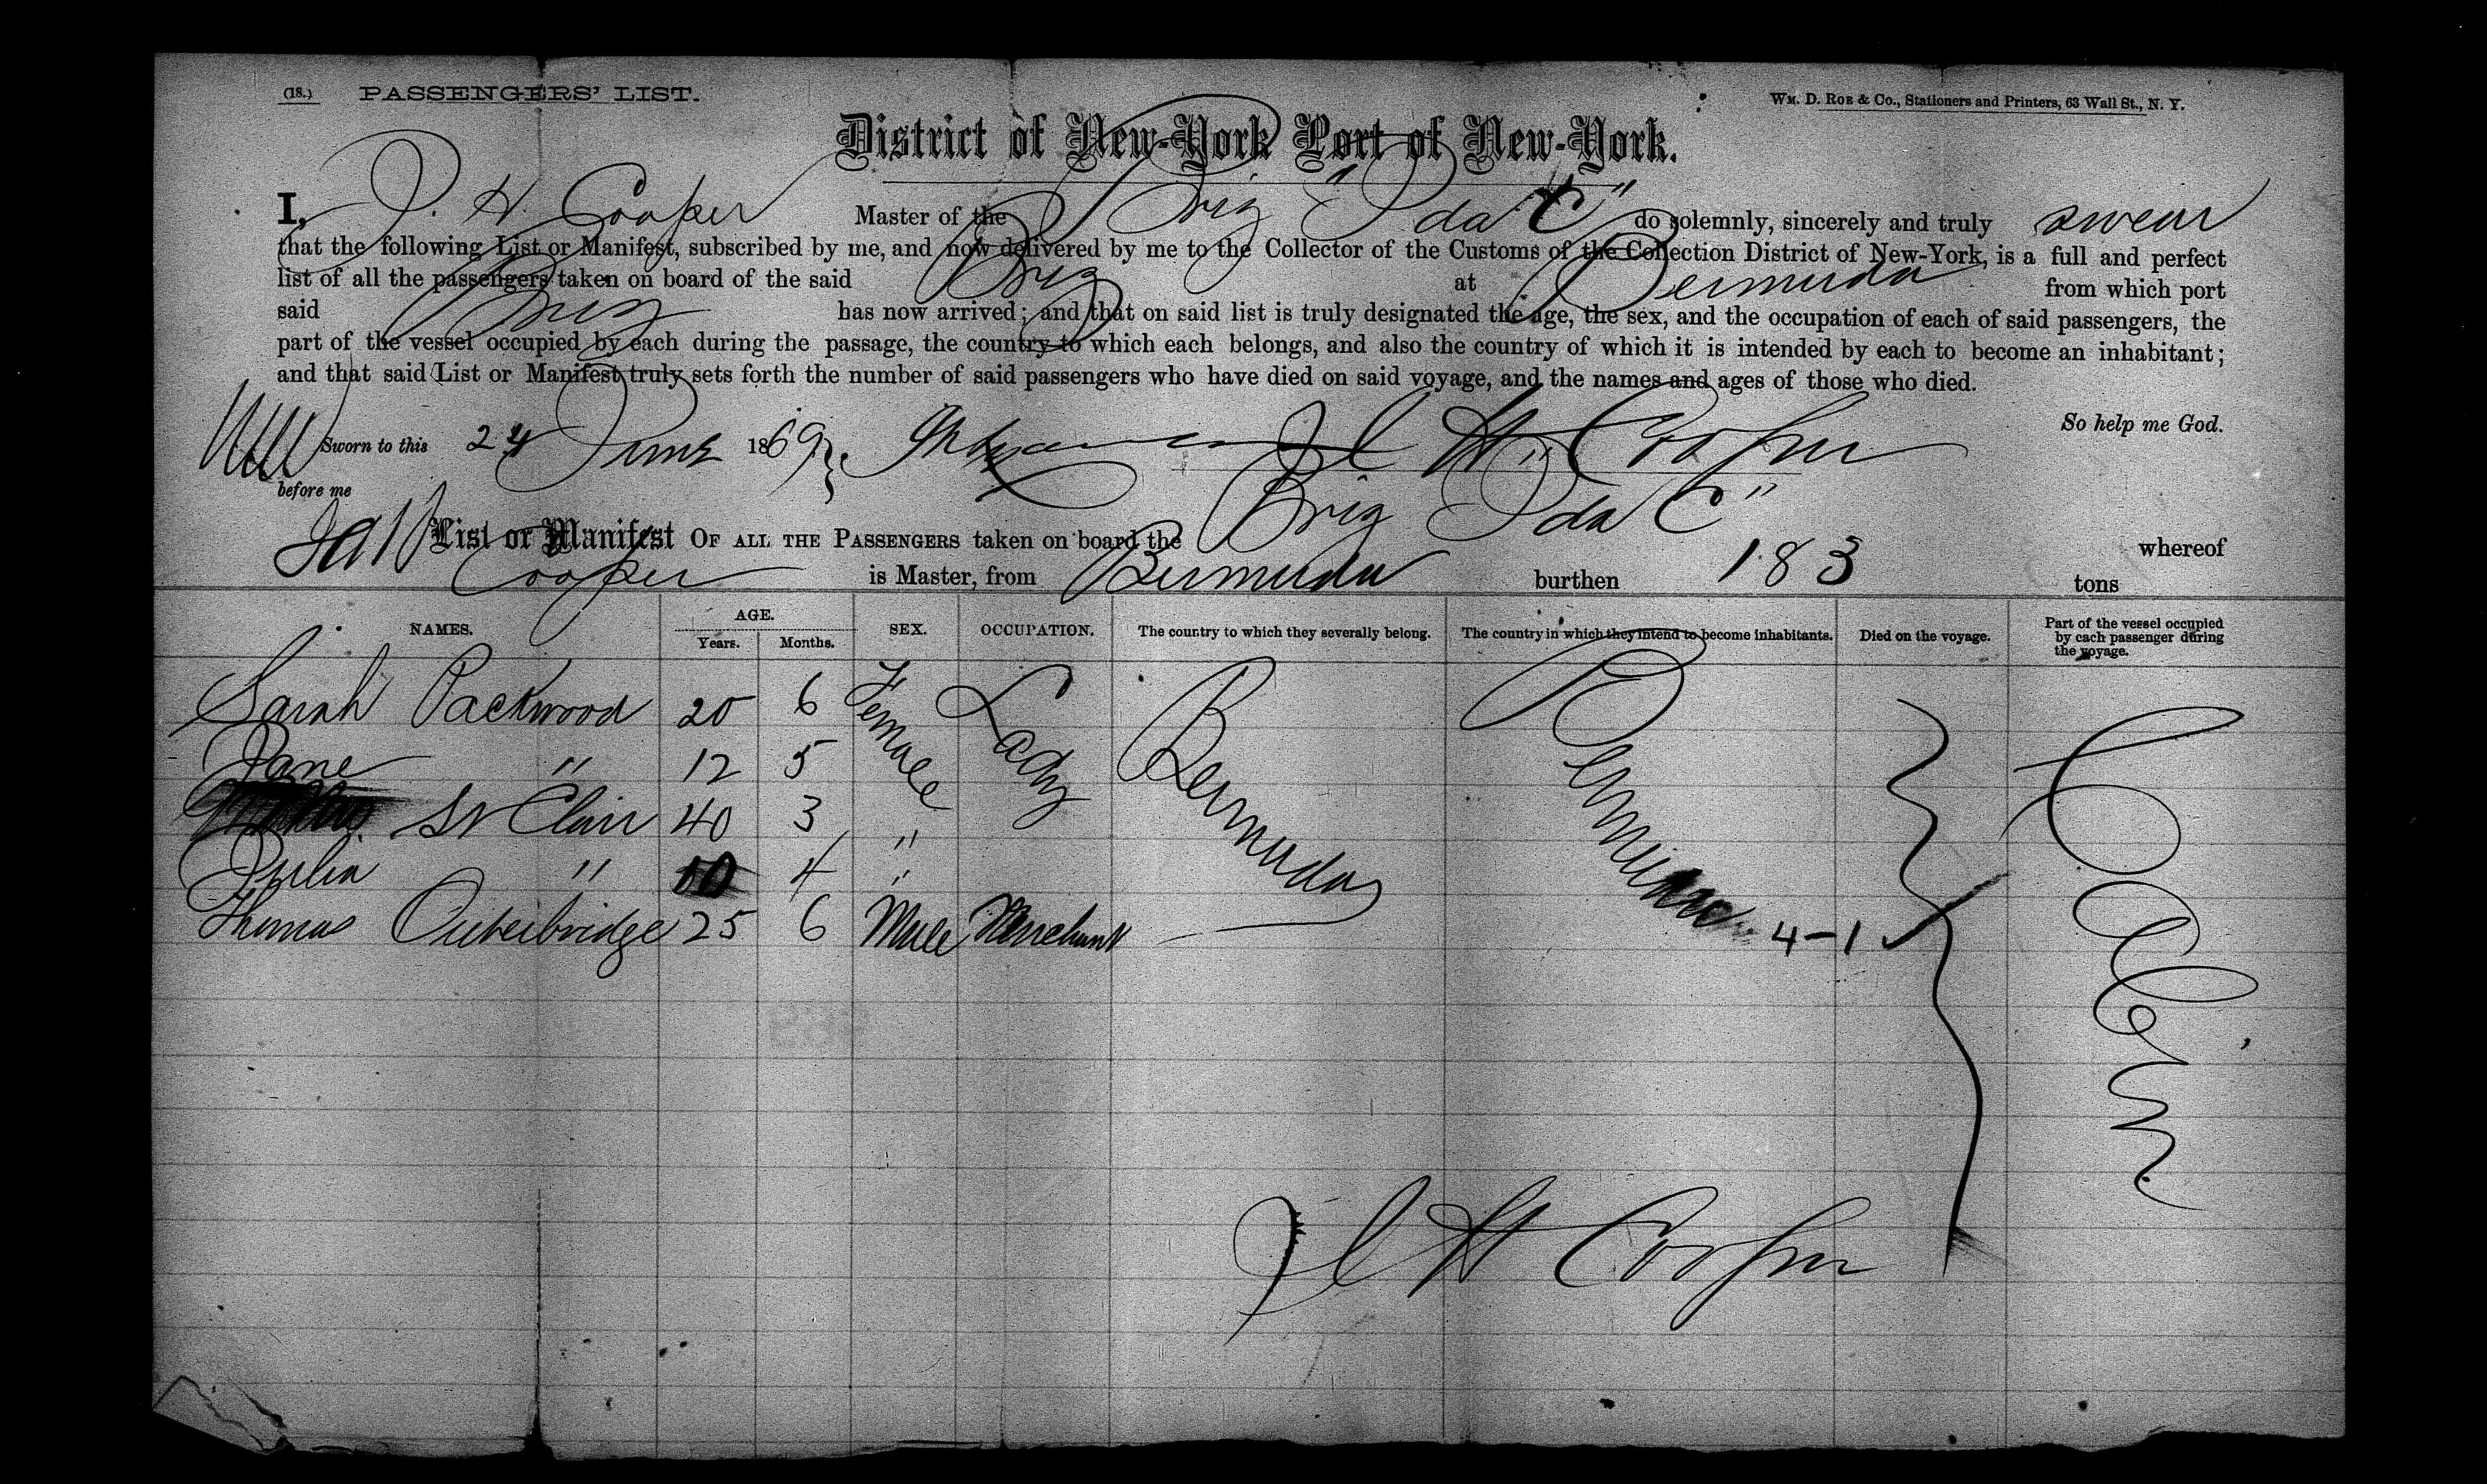 (18.) PASSENGERS' LIST.
WM. D. ROE & CO., Stationers and Printers, 63 Wall St., N. Y.
District of New-York Port of New-York.
I, J. H. Cooper Master of the Brig "Ida C" do solemnly, sincerely and truly swear
that the following List or Manifest, subscribed by me, and now delivered by me to the Collector of the Customs of the Collection District of New-York, is a full and perfect
list of all the passengers taken on board of the said Brig at Bermuda from which port
said Brig has now arrived; and that on said list is truly designated the age, the sex, and the occupation of each of said passengers, the
part of the vessel occupied by each during the passage, the country to which each belongs, and also the country of which it is intended by each to become an inhabitant;
and that said List or Manifest truly sets forth the number of said passengers who have died on said voyage, and the names and ages of those who died.
So help me God.
Sworn to this 24 June 1869 H Cooper
before me
Brig "Ida C"
List or Manifest OF ALL THE PASSENGERS taken on board the whereof
Cooper is Master, from Bermuda burthen 183 tons
NAMES. AGE. Years. Months. SEX. OCCUPATION. The country to which they severally belong. The country in which they intend to become inhabitants. Died on the voyage. Part of the vessel occupied by each passenger during the voyage.
Sarah Packwood 20 6 Female Lady Bermuda Bermuda Cabin
Jane " 12 5
St Clair 40 3 "
Julia " 10 4 "
Thomas Outerbridge 25 6 Male Merchant 4-1
H Cooper